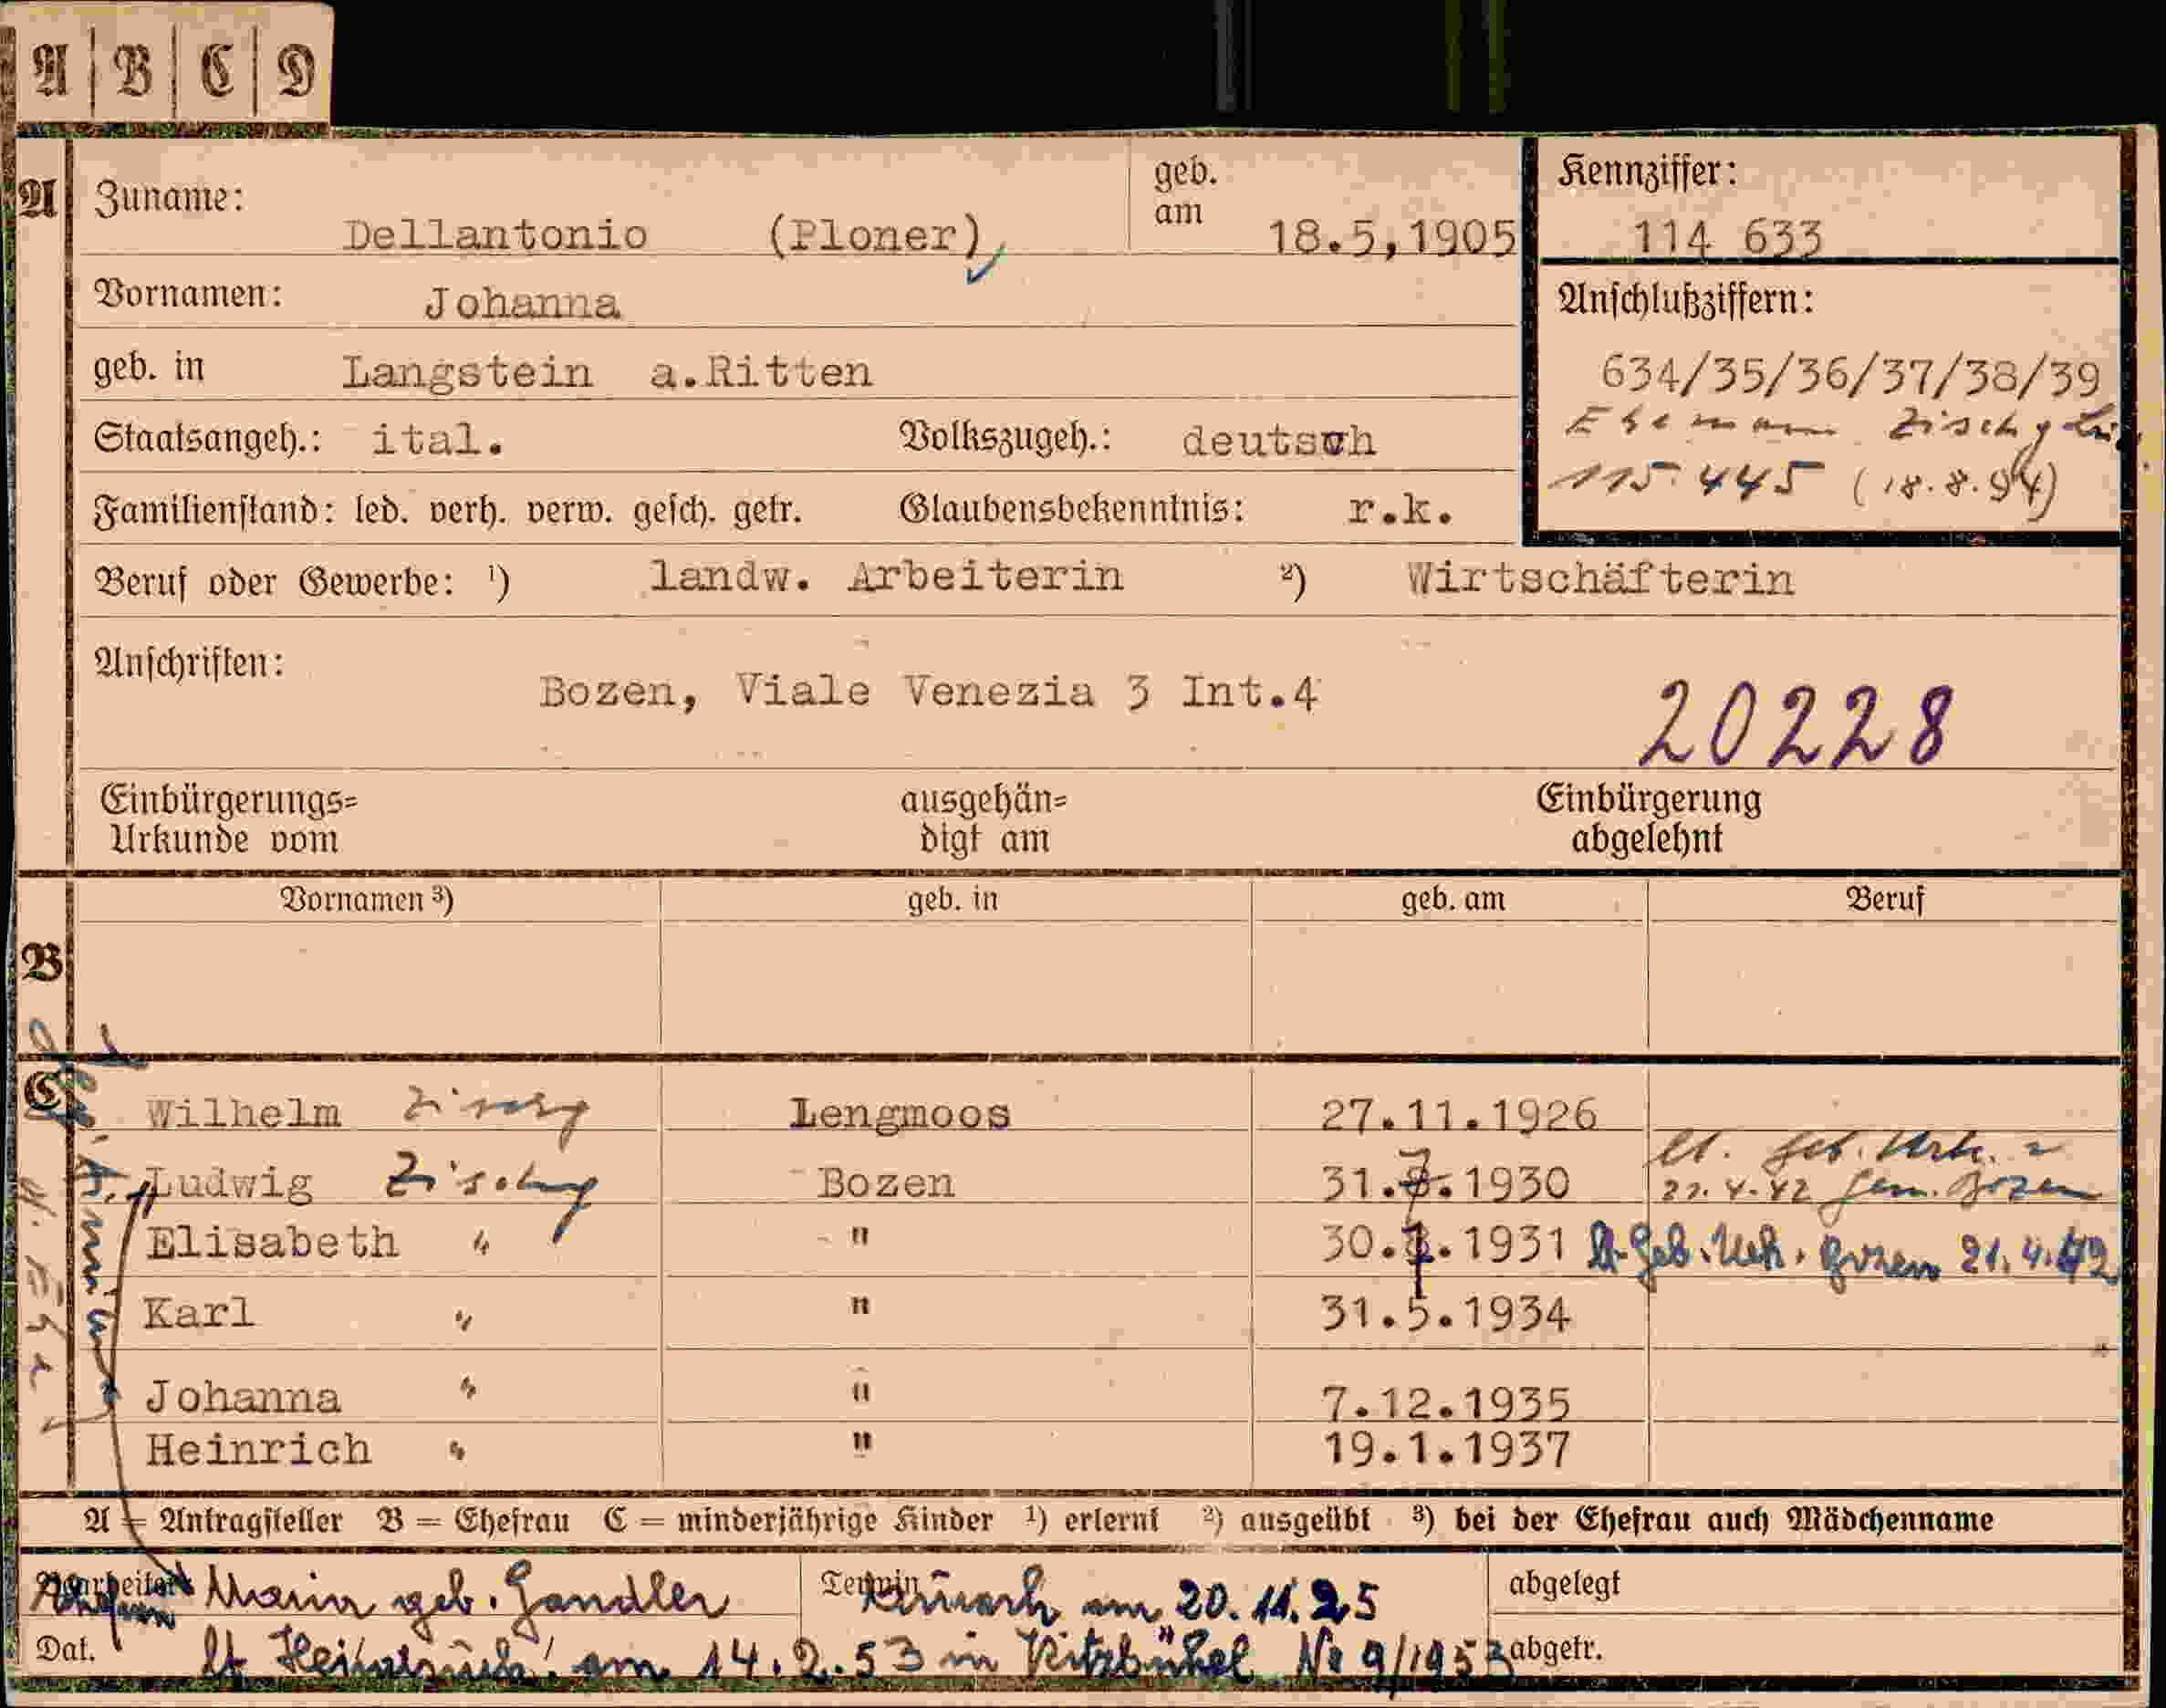 A | B | C | D
A Zuname: Dellantonio (Ploner) geb. am 18.5,1905
Kennziffer: 114 633
Vornamen: Johanna
Anschlußziffern:
634/35/36/37/38/39
geb. in Langstein a.Ritten
Ehemann
115 445 (18.8.94)
Staatsangeh.: ital. Volkszugeh.: deutsch
Familienstand: led. verh. verw. gesch. getr. Glaubensbekenntnis: r.k.
Beruf oder Gewerbe: 1) landw. Arbeiterin 2) Wirtschäfterin
Anschriften: Bozen, Viale Venezia 3 Int.4
20228
Einbürgerungs= ausgehän= Einbürgerung
Urkunde vom digt am abgelehnt
Vornamen 3) geb. in geb. am Beruf
B
C
Wilhelm Zischg Lengmoos 27.11.1926
Ludwig Zischg Bozen 31.7.1930 lt. Geb. Urk.
Gem. Bozen
Elisabeth " " 30. .1931 lt. Geb. Urk. Bozen 21.4.42
Karl " " 31.5.1934
Johanna " " 7.12.1935
Heinrich " " 19.1.1937
A = Antragsteller B = Ehefrau C = minderjährige Kinder 1) erlernt 2) ausgeübt 3) bei der Ehefrau auch Mädchenname
Maria geb. Gandler Termin am 20.11.25 abgelegt
Dat. lt. am 14.2.53 in Kitzbühel No 9/1953 abgetr.